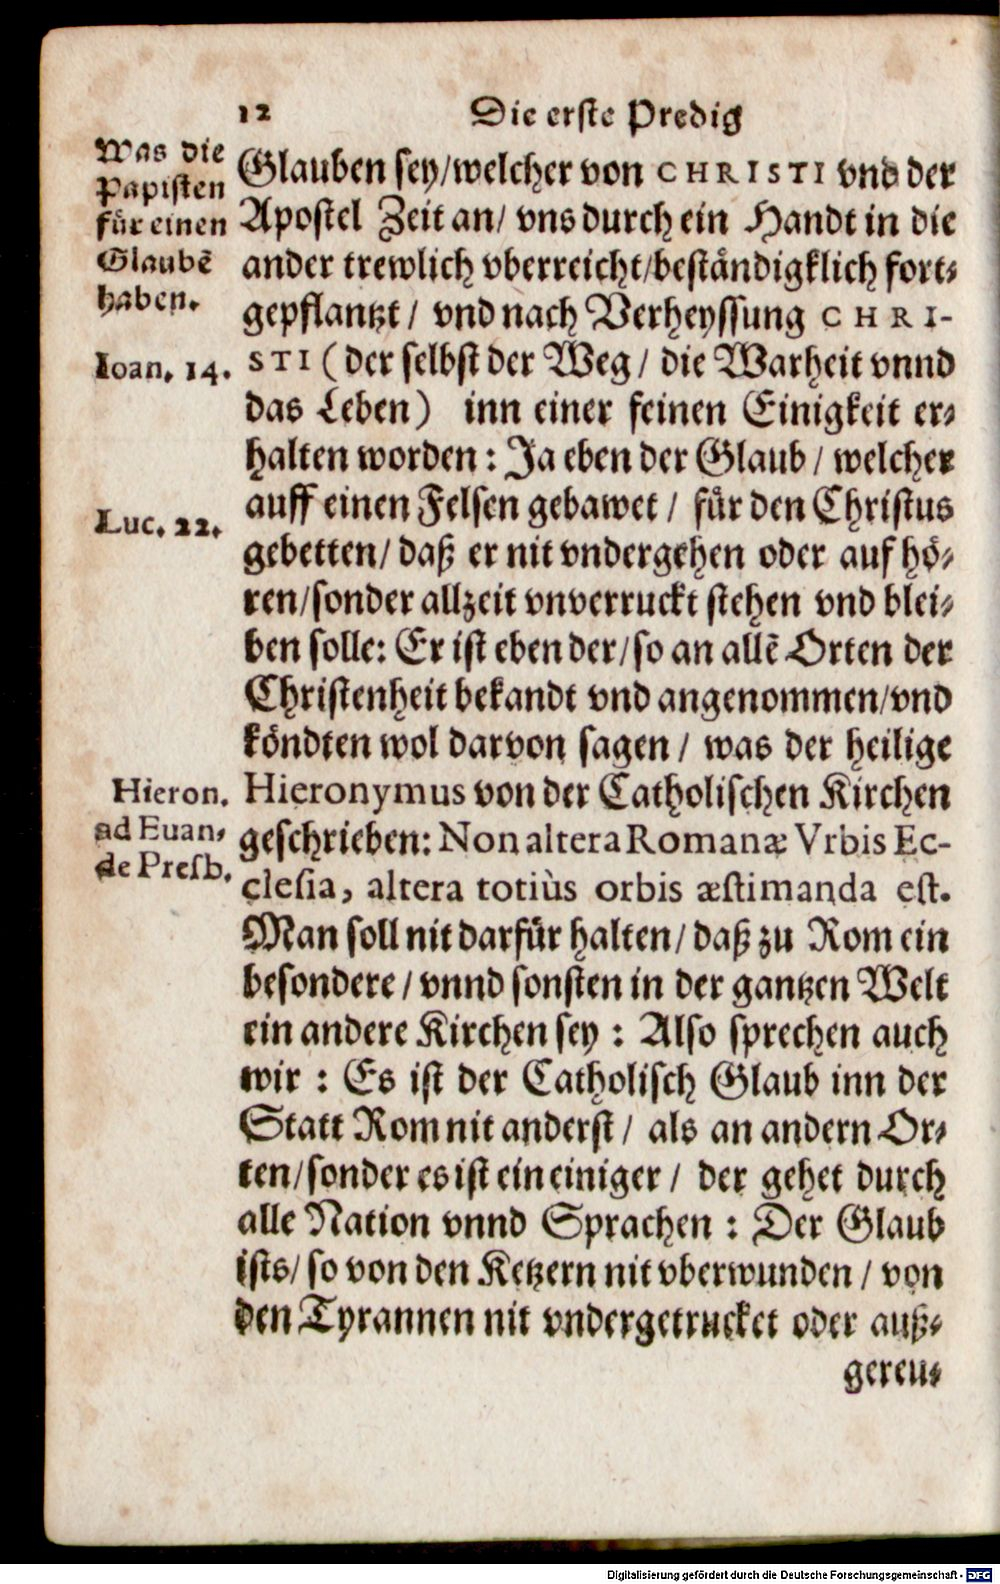 12
Die erste Predig
Was die
Papisten
für einen
Glaubē
haben.
Ioan. 14.
Luc. 22.
Hieron.
ad Euan-
de Presb.
Glauben sey/welcher von CHRISTI vnd der
Apostel Zeit an/ vns durch ein Handt in die
ander trewlich vberreicht/beständigklich fort-
gepflantzt / vnd nach Verheyssung CHRI-
STI (der selbst der Weg / die Warheit vnnd
das Leben) inn einer feinen Einigkeit er-
halten worden : Ja eben der Glaub / welcher
auff einen Felsen gebawet / für den Christus
gebetten/ daß er nit vndergehen oder auf hö-
ren/sonder allzeit vnverruckt stehen vnd blei-
ben solle: Er ist eben der/so an allē Orten der
Christenheit bekandt vnd angenommen/vnd
köndten wol darvon sagen / was der heilige
Hieronymus von der Catholischen Kirchen
geschrieben: Non altera Romanæ Vrbis Ec-
clesia, altera totiùs orbis æstimanda est.
Man soll nit darfür halten/ daß zu Rom ein
besondere / vnnd sonsten in der gantzen Welt
ein andere Kirchen sey : Also sprechen auch
wir : Es ist der Catholisch Glaub inn der
Statt Rom nit anderst / als an andern Or-
ten/sonder es ist ein einiger / der gehet durch
alle Nation vnnd Sprachen : Der Glaub
ists/ so von den Ketzern nit vberwunden / von
den Tyrannen nit vndergetrucket oder auß-
gereu-
Digitalisierung gefördert durch die Deutsche Forschungsgemeinschaft - DFG